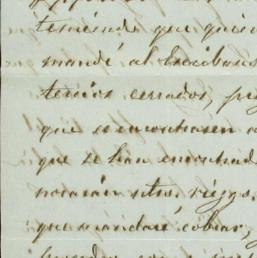 teniendo que quie
mandé al Escribano
tercios cerrados, pr
que se encontrasen a
que se han encontrad
notarán otros, viejos
que mandaré cobrar,